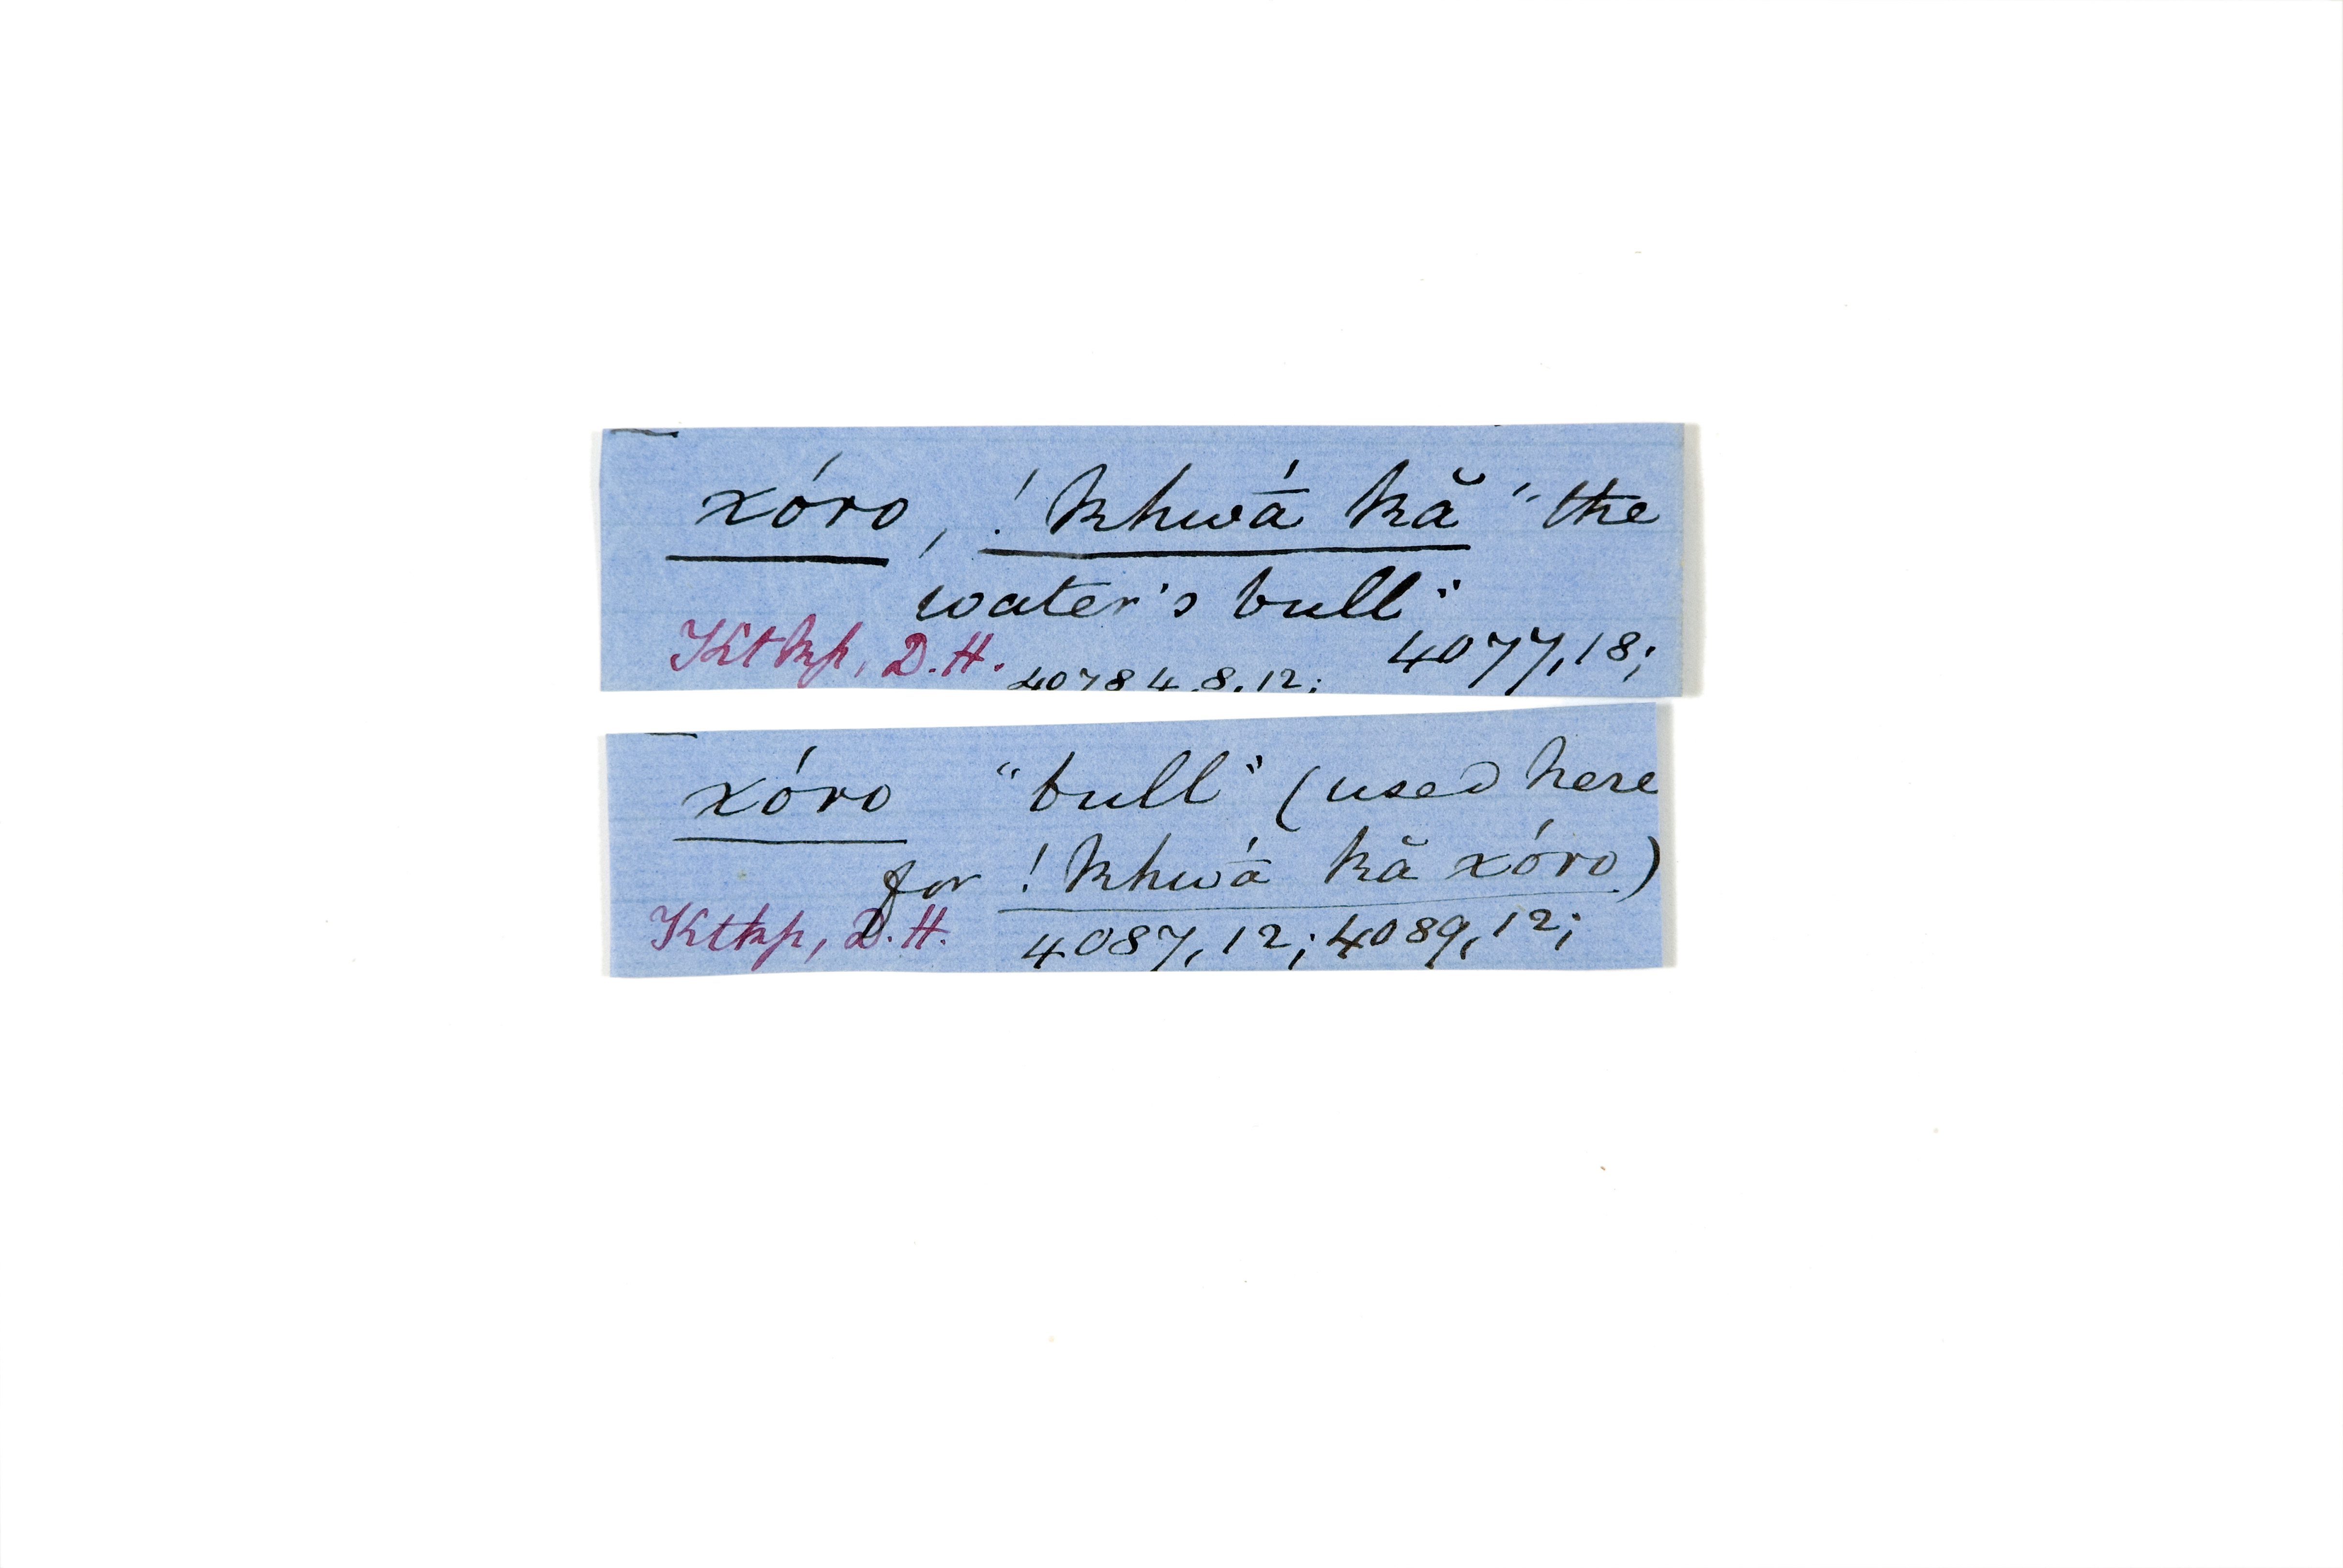 xóro, !khwā́ kă "the
water's bull"
Ktkkp, D.H. 4077,18;
4078 4,8,12;
xóro "bull" (used here
for !khwā́ kă xóro)
Ktkkp, D.H. 4087,12; 4089,12;